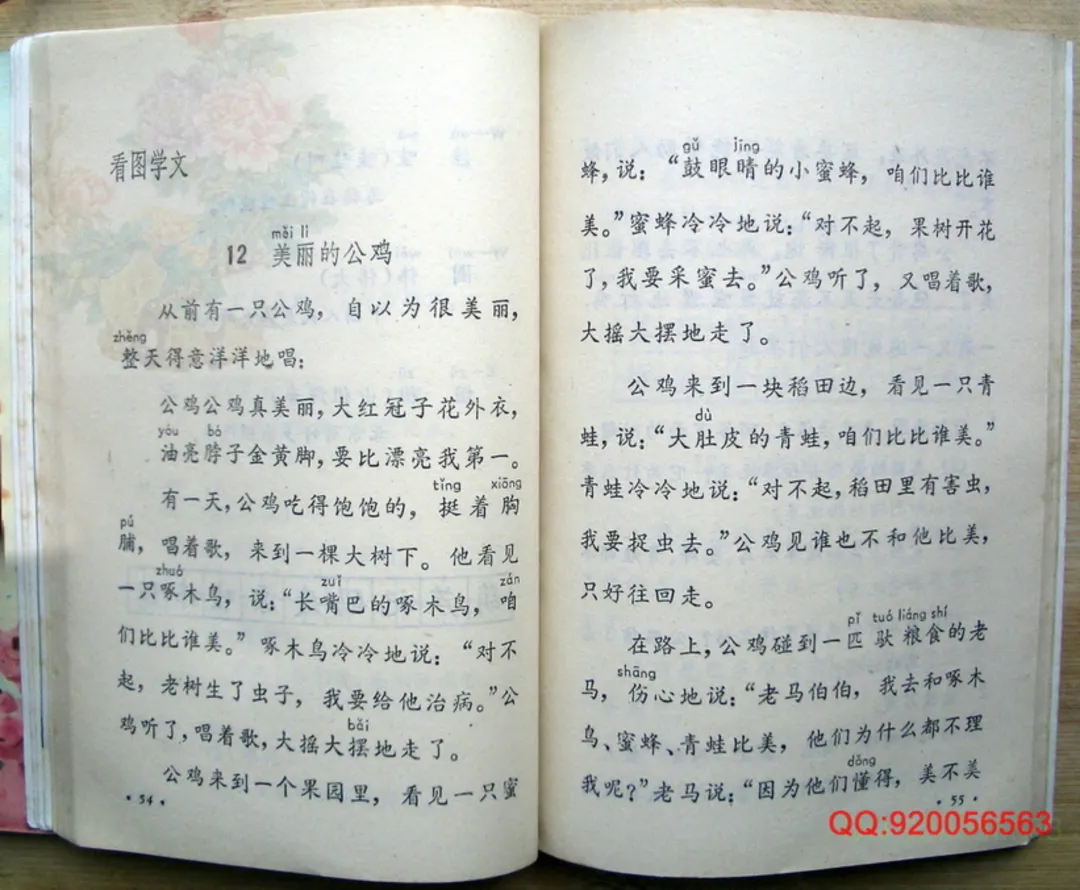 看图学文
měi lì
12 美丽的公鸡
从前有一只公鸡，自以为很美丽，
zhěng
整天得意洋洋地唱：
公鸡公鸡真美丽，大红冠子花外衣，
yóu bó
油亮脖子金黄脚，要比漂亮我第一。
tǐng xiōng
有一天，公鸡吃得饱饱的，挺着胸
pú
脯，唱着歌，来到一棵大树下。他看见
zhuó zuǐ zán
一只啄木鸟，说：“长嘴巴的啄木鸟，咱
们比比谁美。”啄木鸟冷冷地说：“对不
起，老树生了虫子，我要给他治病。”公
bǎi
鸡听了，唱着歌，大摇大摆地走了。
公鸡来到一个果园里，看见一只蜜
·54·
gǔ jīng
蜂，说：“鼓眼睛的小蜜蜂，咱们比比谁
美。”蜜蜂冷冷地说：“对不起，果树开花
了，我要采蜜去。”公鸡听了，又唱着歌，
大摇大摆地走了。
公鸡来到一块稻田边，看见一只青
dù
蛙，说：“大肚皮的青蛙，咱们比比谁美。”
青蛙冷冷地说：“对不起，稻田里有害虫，
我要捉虫去。”公鸡见谁也不和他比美，
只好往回走。
pǐ tuó liáng shí
在路上，公鸡碰到一匹驮粮食的老
shāng
马，伤心地说：“老马伯伯，我去和啄木
鸟、蜜蜂、青蛙比美，他们为什么都不理
dǒng
我呢？”老马说：“因为他们懂得，美不美
·55·
QQ:920056563